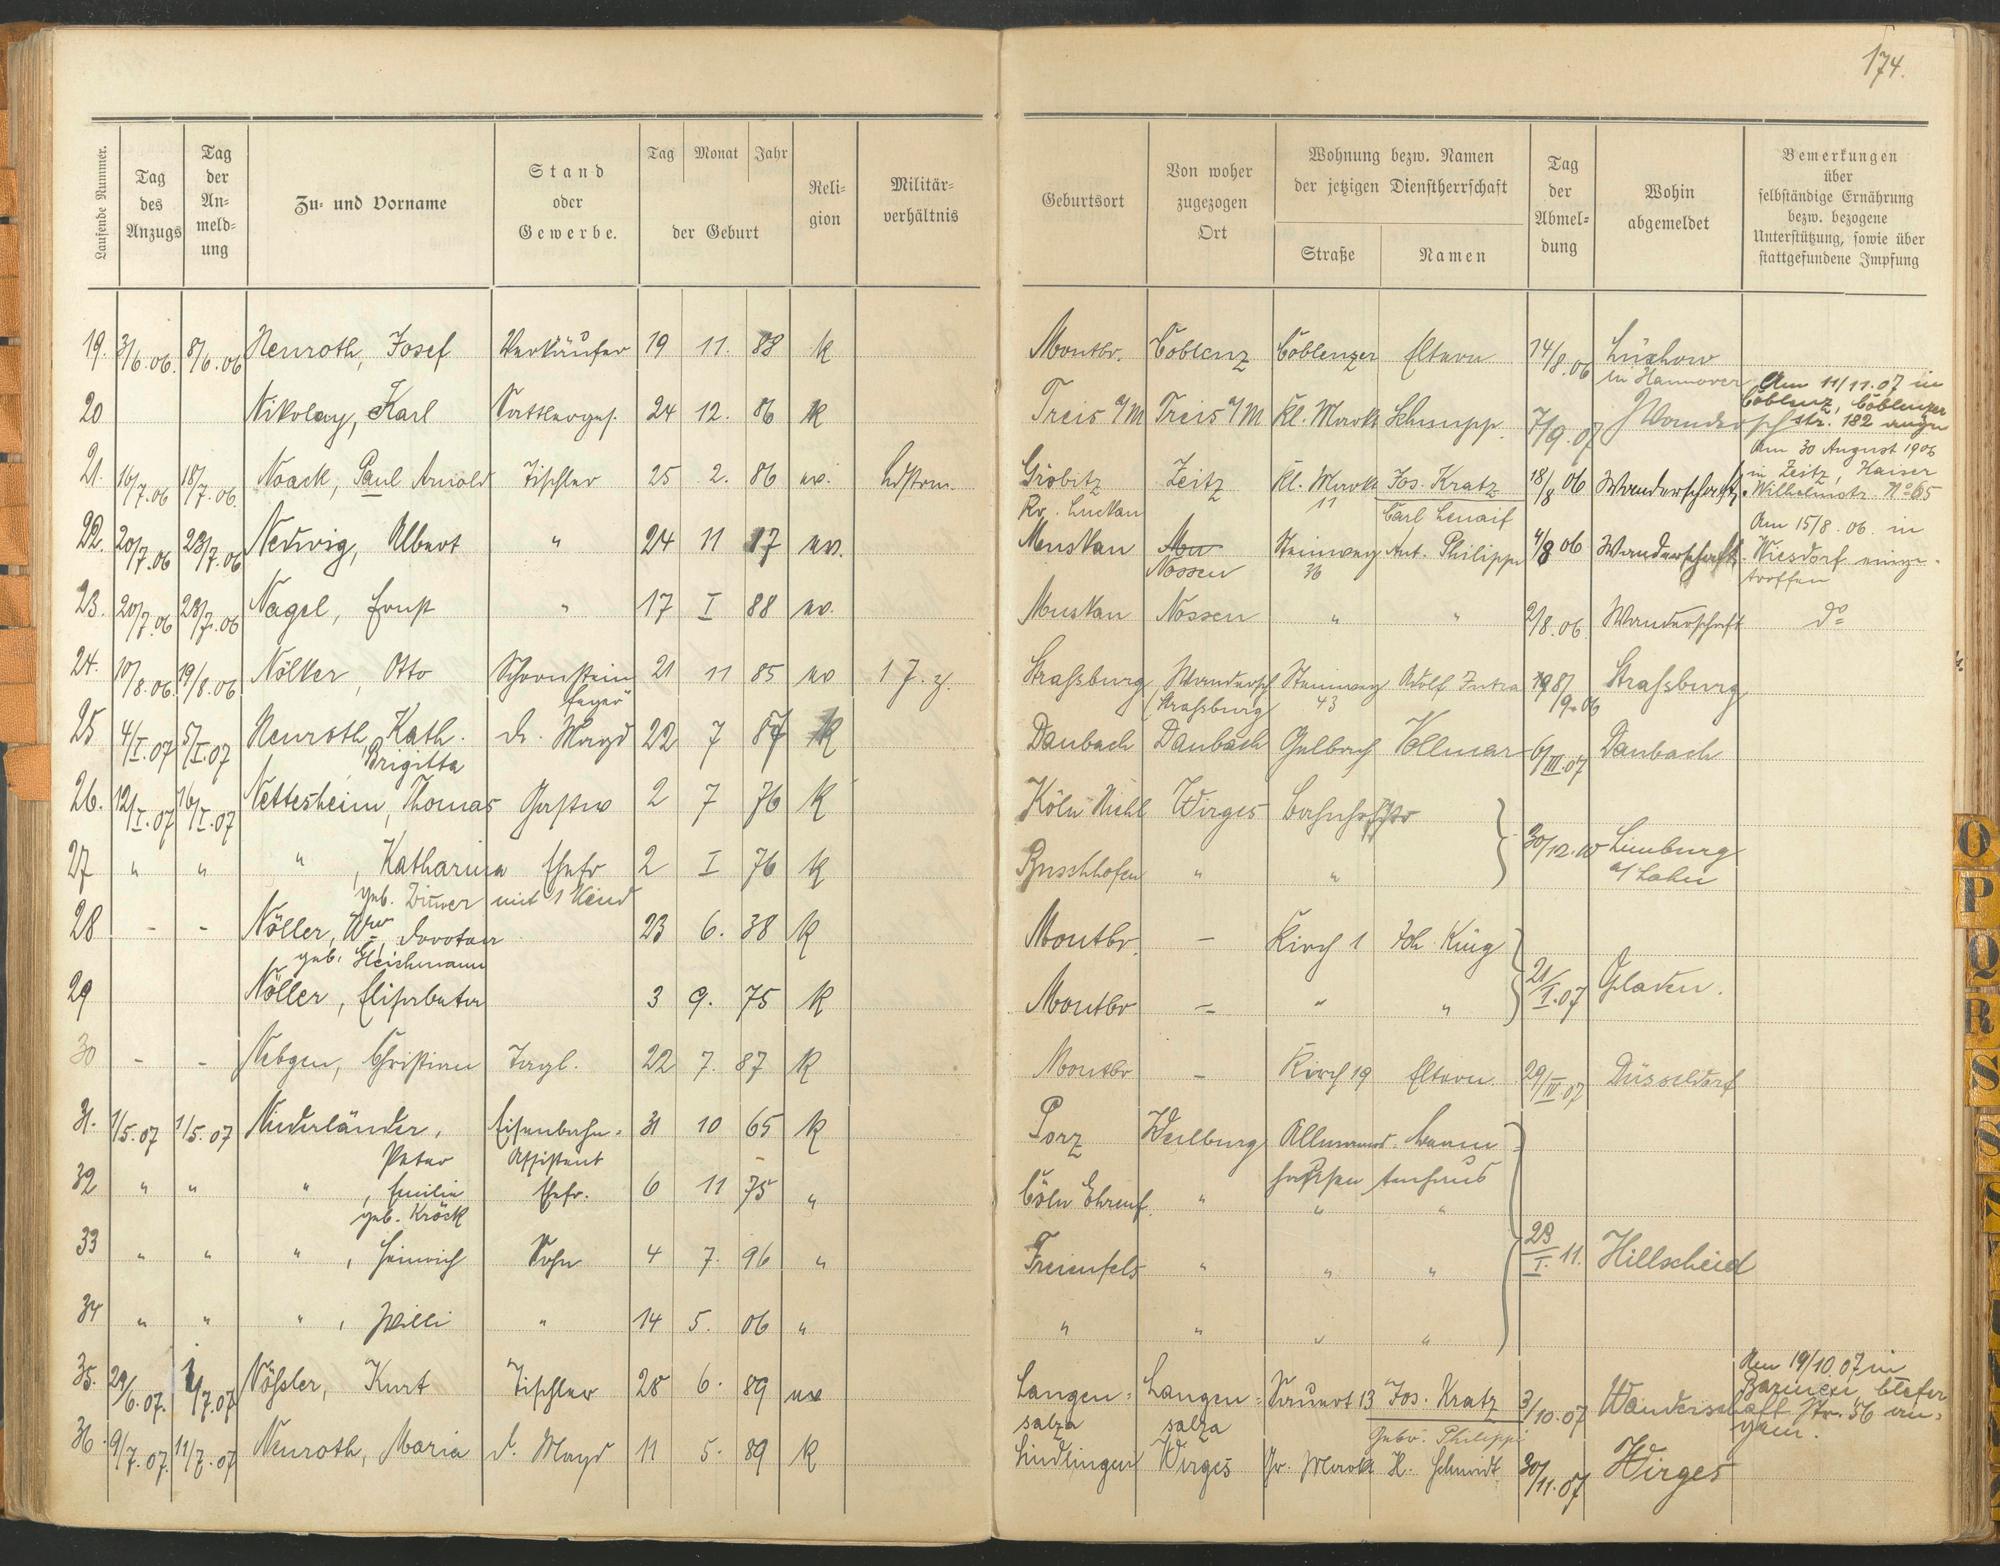 174.
Laufende Nummer.
Tag des Anzugs
Tag der An-meld-ung
Zu- und Vorname
Stand oder Gewerbe.
Tag Monat Jahr
der Geburt
Reli-gion
Militär-verhältnis
Geburtsort
Von woher zugezogen Ort
Wohnung bezw. Namen der jetzigen Dienstherrschaft
Straße
Namen
Tag der Abmel-dung
Wohin abgemeldet
Bemerkungen über selbständige Ernährung bezw. bezogene Unterstützung, sowie über stattgefundene Impfung
19. 3/6.06. 8/6.06 Neuroth, Josef Verkäufer 19 11. 88 k Montbr. Coblenz Coblenzer Eltern 14/8.06 Lüchow
in Hannover
20 Nikolay, Karl Sattlerges. 24 12. 86 k Treis a/M Treis a/M Kl. Markt Schnupp. 7/9.07 Wandersch Am 11/11.07 in
Coblenz, Coblenzer
str. 182
21. 16/7.06 18/7.06. Noack, Paul Arnold Tischler 25 2. 86 ev. Ldstrm. Gröbitz Zeitz Kl. Markt Jos. Kratz 18/8 06 Wanderschaft. Am 30 August 1906
in Zeitz, Kaiser
Wilhelmstr. No 65
Kr. Luckau 11 Carl
22. 20/7.06 23/7.06 Nedwig, Albert " 24 11 17 ev. Muskau Mu Steinweg Ant. Philippi 4/8 06 Wanderschaft. Am 15/8.06. in
Wiesdorf einge-
troffen
Nossen 36
23. 20/7.06 23/7.06 Nagel, Ernst " 17 I 88 ev. Muskau Nossen " " 2/8.06 Wanderschaft do
24. 10/8.06. 19/8.06 Nölker, Otto Schornstein 21 11 85 ev 1 J. z. Straßburg Wandersch Steinweg Adolf /9.06 Straßburg
feger (Straßburg 43
25 4/I.07 5/I.07 Neuroth, Kath. d. Magd 22 7 87 k Daubach Daubach Gelbach Vollmar 6/III.07 Daubach
Brigitta
26. 12/I.07 16/I.07 Nettesheim, Thomas Gastw 2 7 76 k Köln Riehl Wirges Bahnhofstr
27 " " " , Katharina Ehefr 2 I 76 k Buschhofen " " 30/12.10 Limburg
a/ Lahn
geb. mit 1 Kind
28 - - Nöller, Ww Dorothea 23 6. 38 k Montbr. - Kirch 1 Joh. King
geb. Gleichmann
29 Nöller, Elisabeta 3 9. 75 k Montbr - " " 21/I.07 Gladen.
30 - - Nebgen, Christian Tagl. 22 7. 87 k Montbr - Kirch 19 Eltern 29/IV.07 Düsseldorf
31. 1/5.07 1/5.07 Niederländer, Eisenbahn- 31 10 65 k Porz Weilburg Allmannshausen
Peter Assistent
32 " " " , Emilie Ehefr. 6 11 75 " Cöln Ehrenf. " " "
geb. Kröck
33 " " " , Heinrich Sohn 4 7. 96 " Freienfels " " " 23/I.11. Hillscheid
34 " " " , Willi " 14 5. 06 " " " " "
35. 29/6.07. 1/7.07 Nößler, Kurt Tischler 28 6. 89 ev Langen- Langen- Sauert 13 Jos. Kratz 3/10.07 Wanderschaft Am 19/10.07 in
Barmen,
str. 56 an-
gem.
salza salza Gebr. Philippi
36. 9/7.07. 11/7.07 Neuroth, Maria d. Magd 11 5. 89 k Lindlingen Wirges Gr. Markt H. Schmidt 30/11.07 Wirges
O
P
Q
R
S